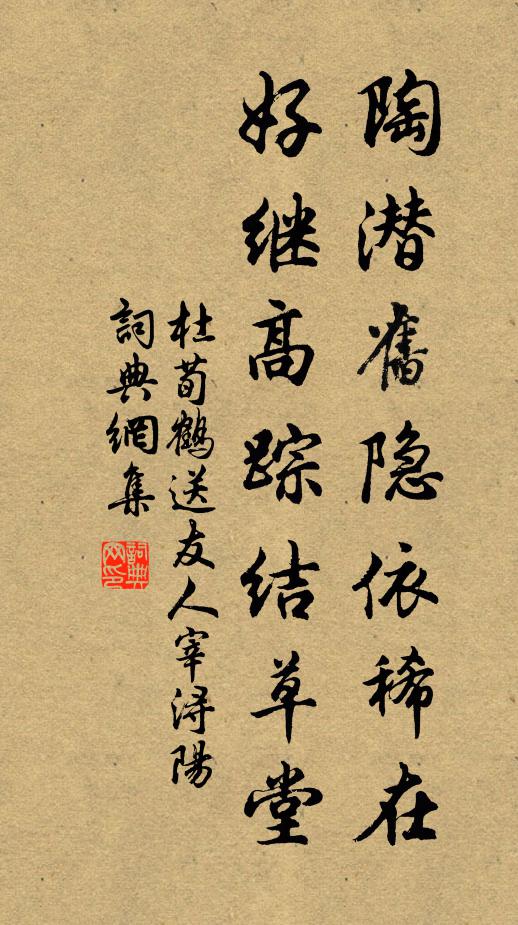 陶潜舊隐依稀在
好继高踪结草堂
杜荀鶴送友人宰潯陽
詞典網集
詞典網印